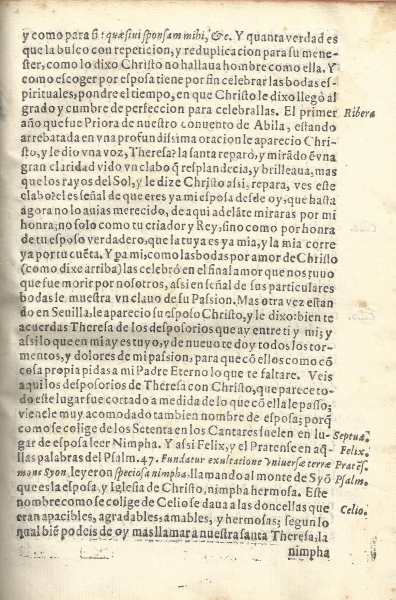 y como para si: quæsiui sponsam mihi, &c. Y quanta verdad es
que la busco con repeticion, y reduplicacion para su mene-
ster, como lo dixo Christo no hallaua hombre como ella. Y
como escoger por esposa tiene por fin celebrar las bodas es-
pirituales, pondre el tiempo, en que Christo le dixo llegò al
grado y cumbre de perfeccion para celebrallas. El primer Ribera
año que fue Priora de nuestro conuento de Abila, estando
arrebatada en vna profundissima oracion le aparecio Chri-
sto, y le dio vna voz, Theresa? la santa reparò, y mirãdo ẽ vna
gran claridad vido vn clabo q̃ resplandecia, y brilleaua, mas
que los rayos del Sol, y le dize Christo assi, repara, ves este
clabo? el es señal de que eres ya mi esposa desde oy, que hasta
agora no lo auias merecido, de aqui adelãte miraras por mi
honra; no solo como tu criador y Rey, sino como por honra
de tu esposo verdadero, que la tuya es ya mia, y la mia corre
ya por tu cuẽta. Y pa mi, como las bodas por amor de Christo
(como dixe arriba) las celebrò en el final amor que nos tuuo
que fue morir por nosotros, assi en señal de sus particulares
bodas le muestra vn clauo de su Passion. Mas otra vez estan
do en Seuilla, le aparecio su esposo Christo, y le dixo: bien te
acuerdas Theresa de los desposorios que ay entre ti y mi; y
assi lo que en mi ay es tuyo, y de nueuo te doy todos los tor-
mentos, y dolores de mi passion, para que cõ ellos como cõ
cosa propia pidas a mi Padre Eterno lo que te faltare. Veis
aqui los desposorios de Theresa con Christo, que parece to-
do este lugar fue cortado a medida de lo que cõ ella le passo;
vienele muy acomodado tambien nombre de esposa; porq̃
como se colige de los Setenta en los Cantares suelen en lu- Septua.
gar de esposa leer Nimpha. Y assi Felix, y el Pratense en aq̃- Felix.
llas palabras del Psalm. 47. Fundatur exultatione vniuersæ terræ Pratẽs.
mons Syon, leyeron speciosa nimpha, llamando al monte de Syõ Psalm.
que es la esposa, y Iglesia de Christo, nimpha hermosa. Este
nombre como se colige de Celio se daua a las doncellas que Celio.
eran apacibles, agradables, amables, y hermosas; segun lo
qual biẽ podeis de oy mas llamar a nuestra santa Theresa, la
nimpha